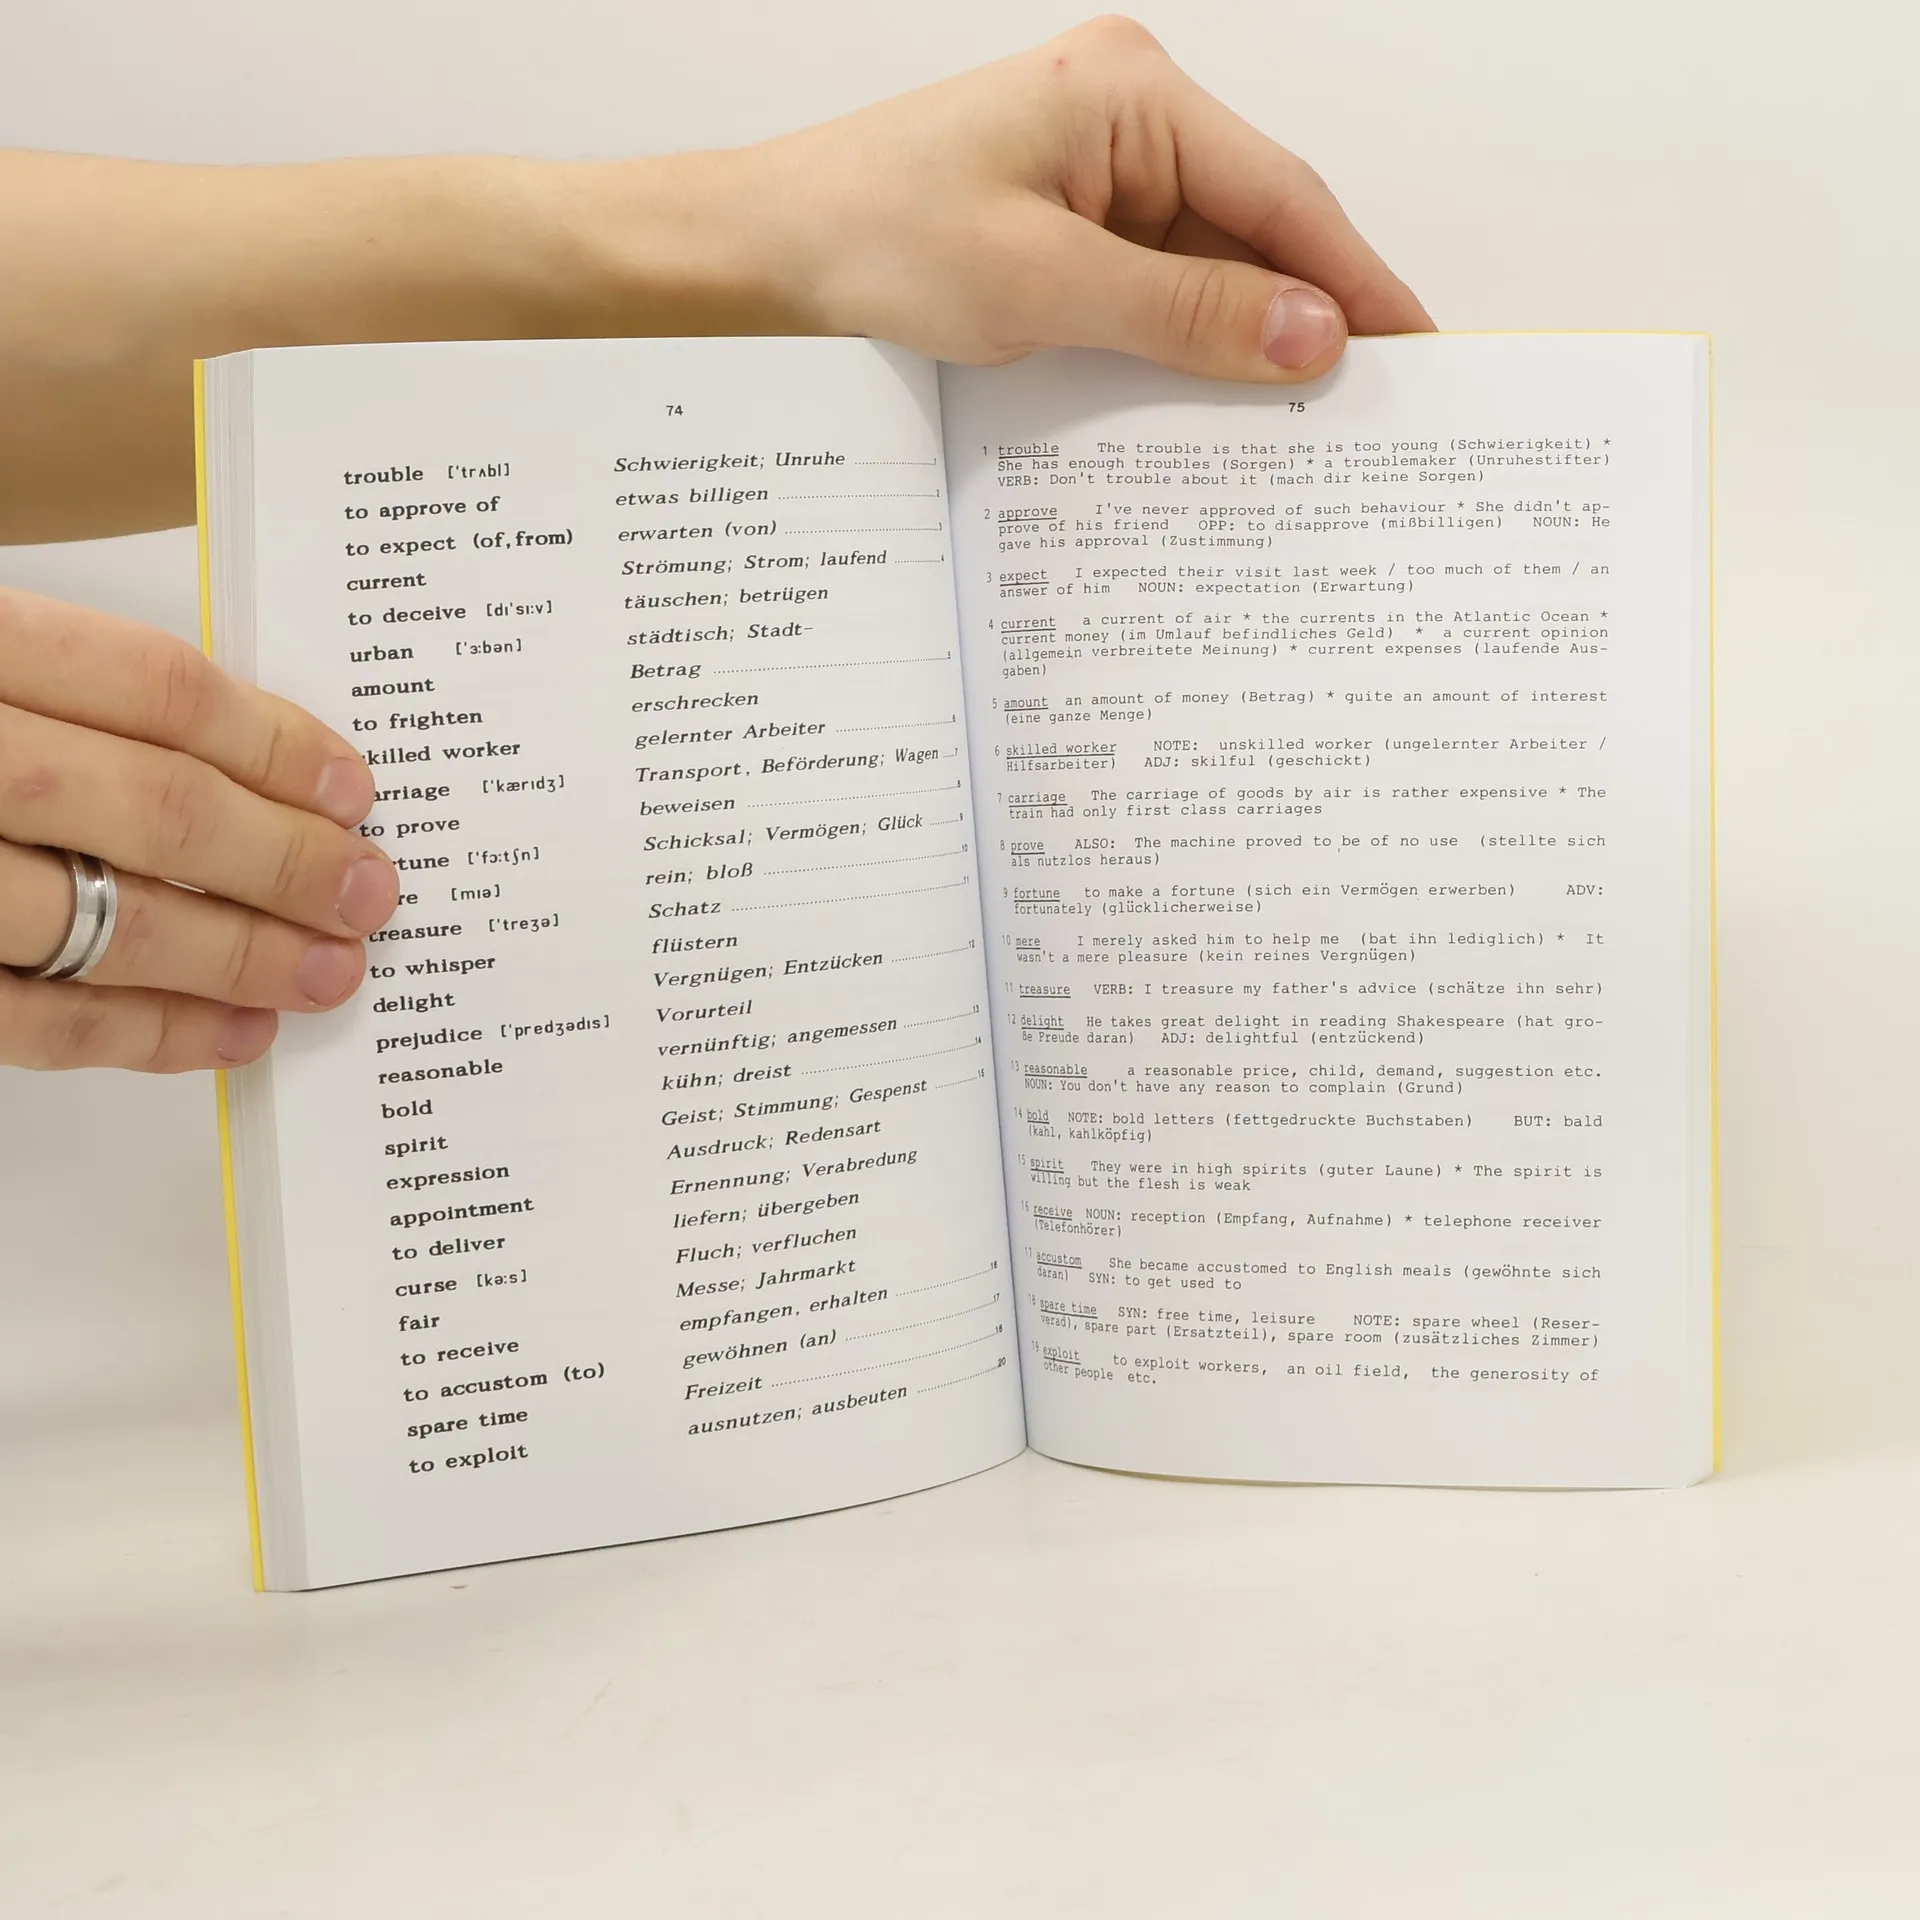 74
trouble ['trʌbl] Schwierigkeit; Unruhe 1
to approve of etwas billigen 2
to expect (of,from) erwarten (von) 3
current Strömung; Strom; laufend 4
to deceive [dɪ'sɪ:v] täuschen; betrügen
urban ['ɜ:bən] städtisch; Stadt-
amount Betrag 5
to frighten erschrecken
killed worker gelernter Arbeiter 6
arriage ['kærɪdʒ] Transport, Beförderung; Wagen 7
to prove beweisen 8
tune ['fɔ:tʃn] Schicksal; Vermögen; Glück 9
re [mɪə] rein; bloß 10
treasure ['treʒə] Schatz 11
to whisper flüstern
delight Vergnügen; Entzücken 12
prejudice ['predʒədɪs] Vorurteil
reasonable vernünftig; angemessen 13
bold kühn; dreist 14
spirit Geist; Stimmung; Gespenst 15
expression Ausdruck; Redensart
appointment Ernennung; Verabredung
to deliver liefern; übergeben
curse [kə:s] Fluch; verfluchen
fair Messe; Jahrmarkt
to receive empfangen, erhalten 16
to accustom (to) gewöhnen (an) 17
spare time Freizeit 18
to exploit ausnutzen; ausbeuten 20
75
1 trouble The trouble is that she is too young (Schwierigkeit) *
She has enough troubles (Sorgen) * a troublemaker (Unruhestifter)
VERB: Don't trouble about it (mach dir keine Sorgen)
2 approve I've never approved of such behaviour * She didn't ap-
prove of his friend OPP: to disapprove (mißbilligen) NOUN: He
gave his approval (Zustimmung)
3 expect I expected their visit last week / too much of them / an
answer of him NOUN: expectation (Erwartung)
4 current a current of air * the currents in the Atlantic Ocean *
current money (im Umlauf befindliches Geld) * a current opinion
(allgemein verbreitete Meinung) * current expenses (laufende Aus-
gaben)
5 amount an amount of money (Betrag) * quite an amount of interest
(eine ganze Menge)
6 skilled worker NOTE: unskilled worker (ungelernter Arbeiter /
Hilfsarbeiter) ADJ: skilful (geschickt)
7 carriage The carriage of goods by air is rather expensive * The
train had only first class carriages
8 prove ALSO: The machine proved to be of no use (stellte sich
als nutzlos heraus)
9 fortune to make a fortune (sich ein Vermögen erwerben) ADV:
fortunately (glücklicherweise)
10 mere I merely asked him to help me (bat ihn lediglich) * It
wasn't a mere pleasure (kein reines Vergnügen)
11 treasure VERB: I treasure my father's advice (schätze ihn sehr)
12 delight He takes great delight in reading Shakespeare (hat gro-
ße Freude daran) ADJ: delightful (entzückend)
13 reasonable a reasonable price, child, demand, suggestion etc.
NOUN: You don't have any reason to complain (Grund)
14 bold NOTE: bold letters (fettgedruckte Buchstaben) BUT: bald
(kahl, kahlköpfig)
15 spirit They were in high spirits (guter Laune) * The spirit is
willing but the flesh is weak
16 receive NOUN: reception (Empfang, Aufnahme) * telephone receiver
(Telefonhörer)
17 accustom She became accustomed to English meals (gewöhnte sich
daran) SYN: to get used to
18 spare time SYN: free time, leisure NOTE: spare wheel (Reser-
verad), spare part (Ersatzteil), spare room (zusätzliches Zimmer)
19 exploit to exploit workers, an oil field, the generosity of
other people etc.